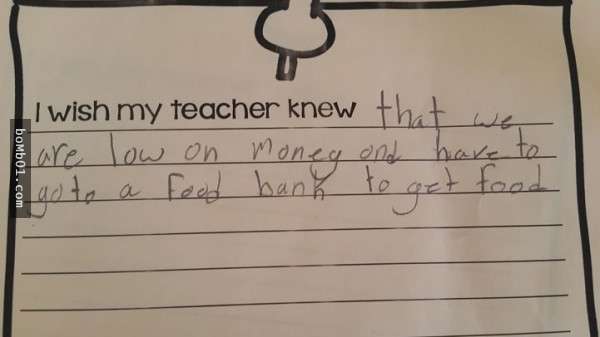 I wish my teacher knew that we
are low on money and have to
go to a food bank to get food
bomb01.com